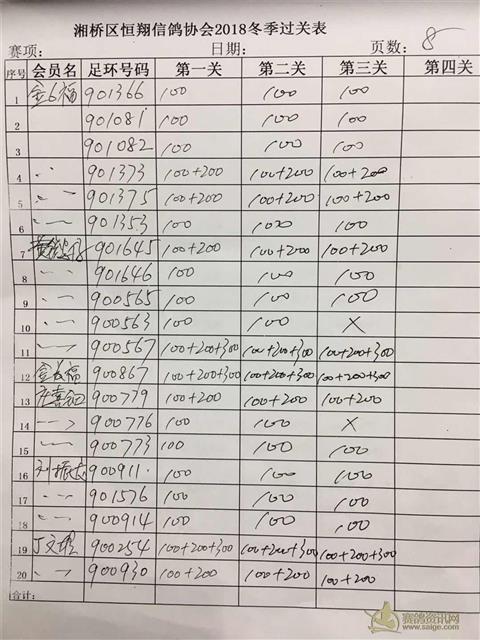 湘桥区恒翔信鸽协会2018冬季过关表
赛项: 日期: 页数: 8
序号 会员名 足环号码 第一关 第二关 第三关 第四关
1 901366 100 100 100
2 901081 100 100 100
3 901082 100 100 100
4 901373 100+200 100+200 100+200
5 901375 100+200 100+200 100+200
6 901353 100 100 100
7 901645 100+200 100+200 100+200
8 901646 100 100 100
9 900565 100 100 100
10 900563 100 100 ×
11 900567 100+200+300 100+200+300 100+200+300
12 900867 100+200+300 100+200+300 100+200+300
13 900779 100+200 100+200 100+200
14 900776 100 100 ×
15 900773 100 100 100
16 900911 100 100 100
17 901576 100 100 100
18 900914 100 100 100
19 900254 100+200+300 100+200+300 100+200+300
20 900930 100+200 100+200 100+200
合计:
赛鸽资讯网
www.saige.com